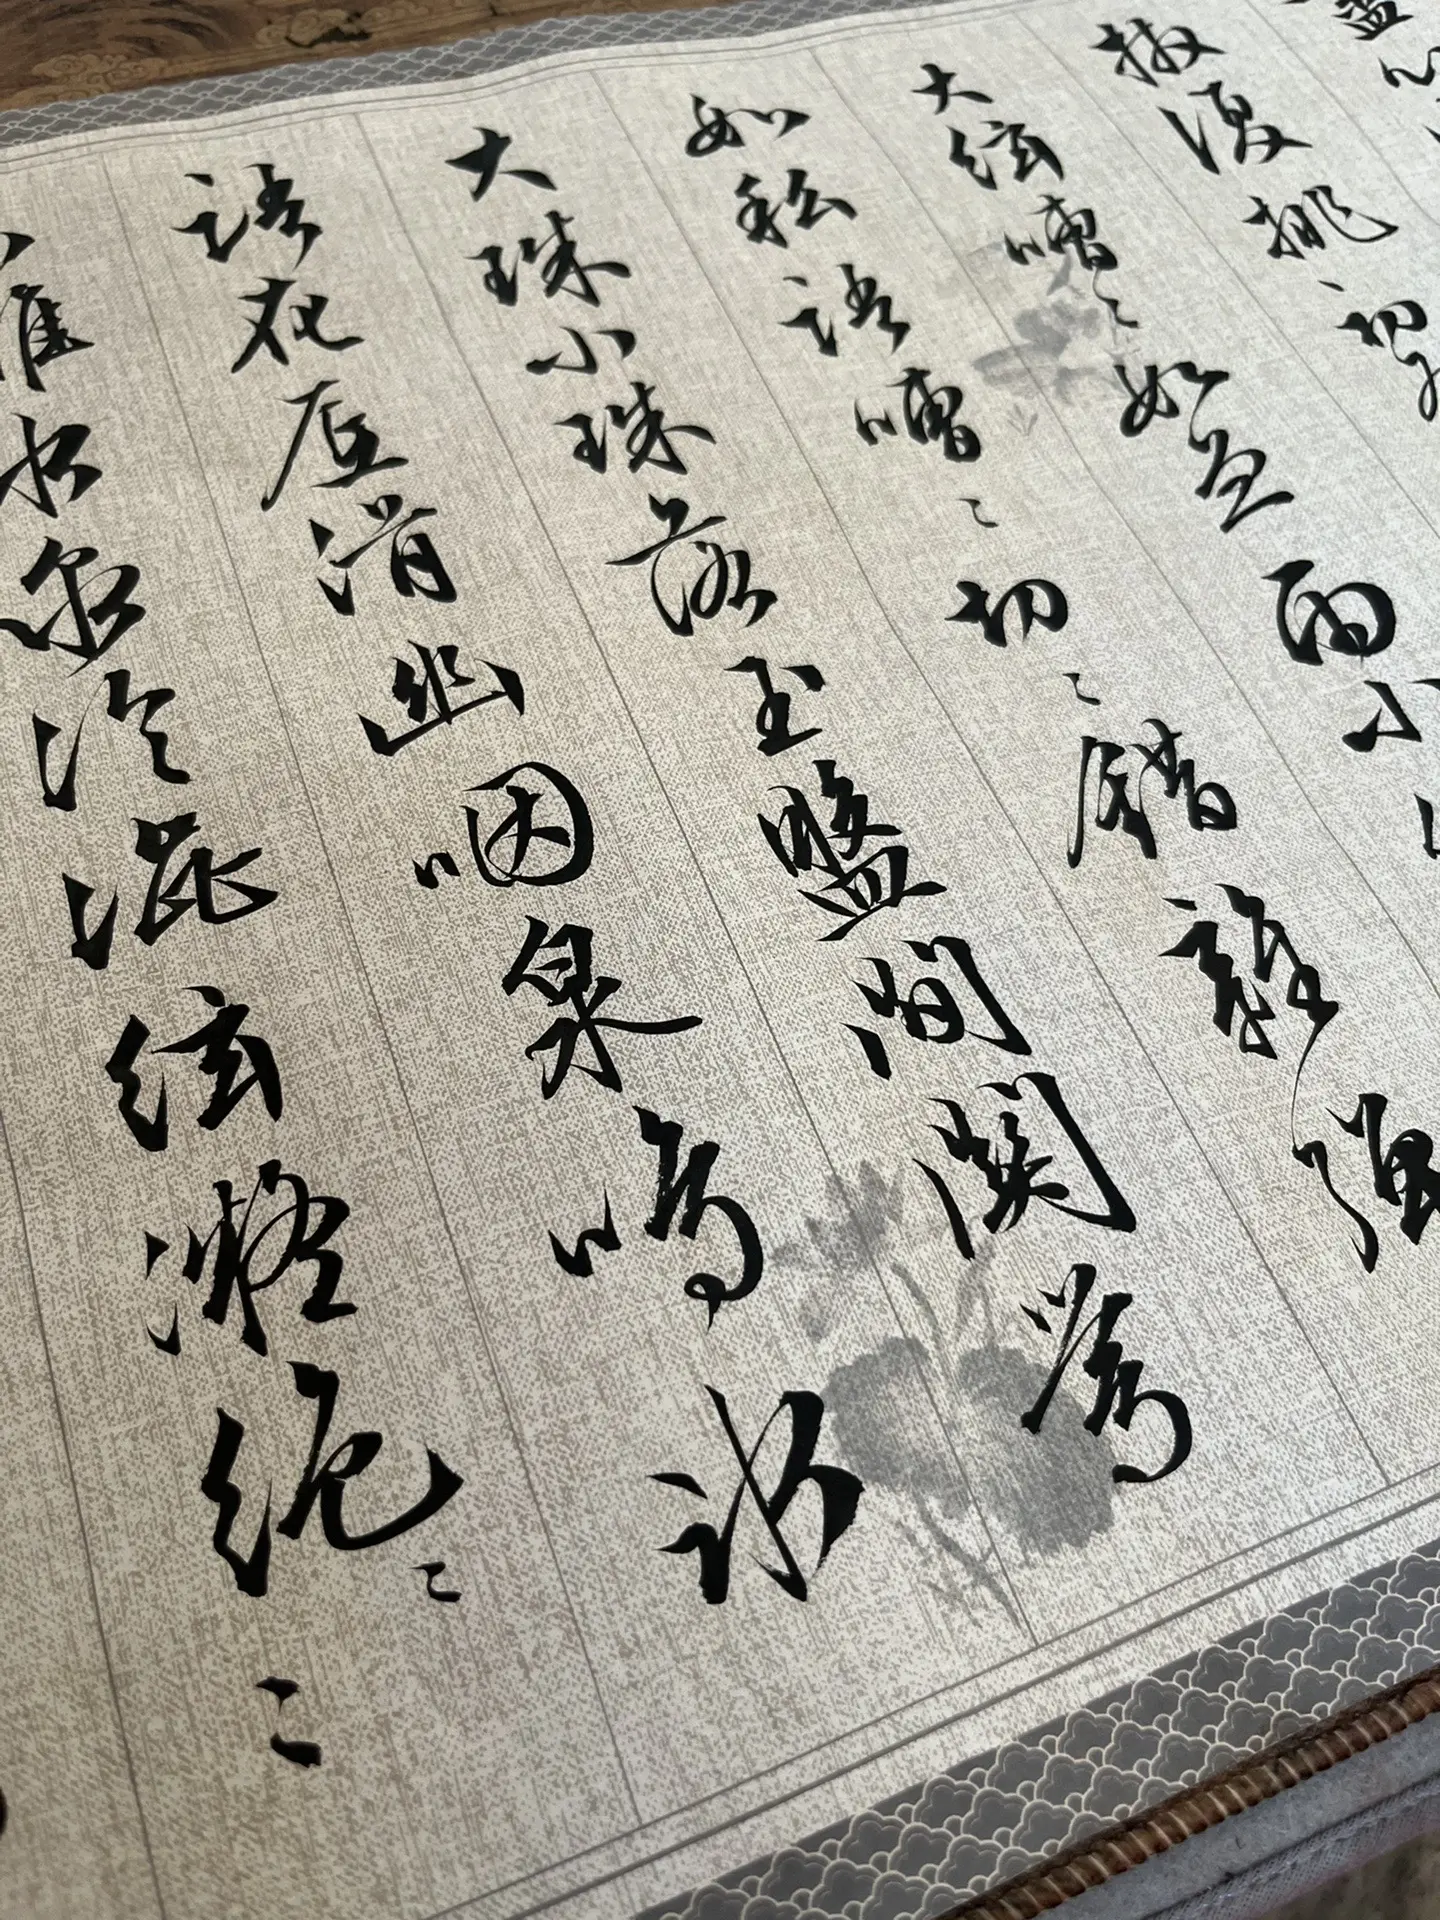 盡心
抹復挑初
大絃嘈〻如急雨小
如私語嘈〻切〻錯雜彈
大珠小珠落玉盤間關鶯
語花底滑幽咽泉鳴冰
難水泉冷澀絃凝絕〻〻